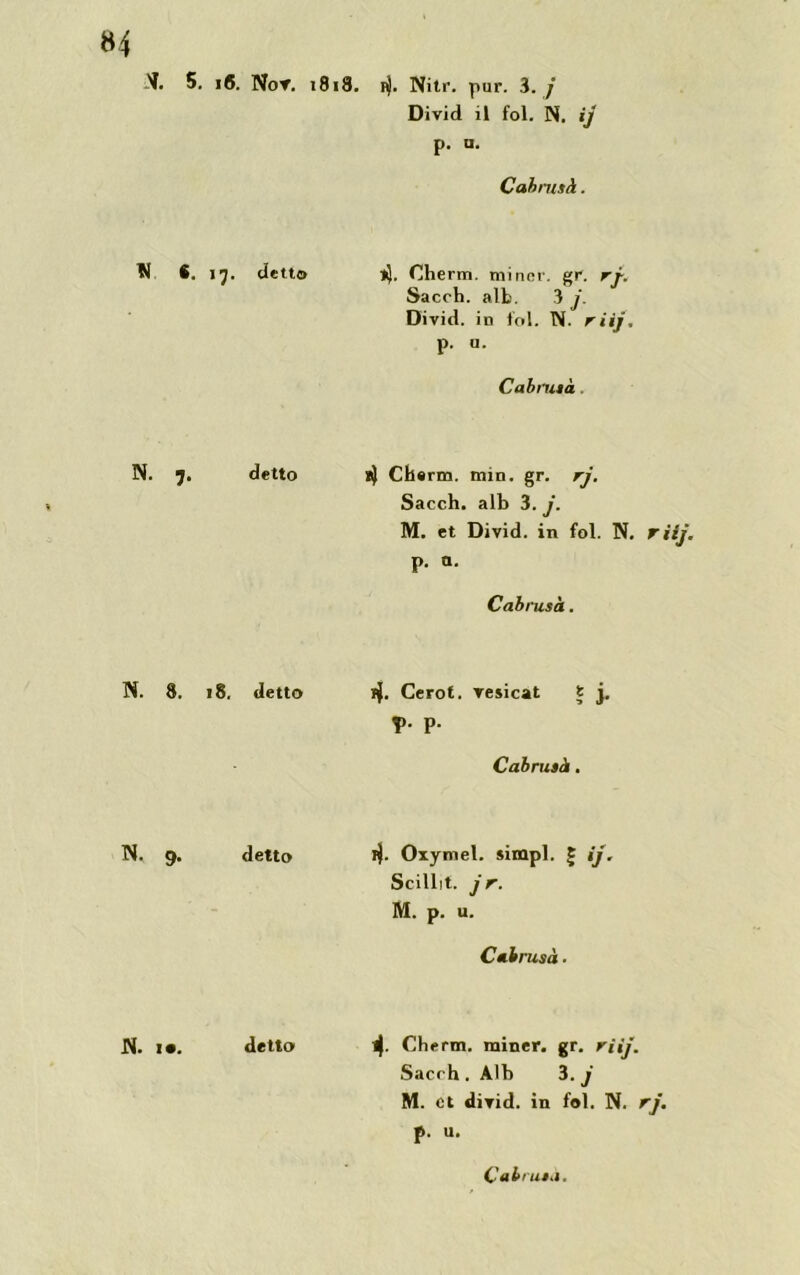 84
N. 5. 16. Nov. 1818. ℞. Nitr. pur. 3. j
Divid il fol. N. ij
p. u.
Cabrusà.
N 6. 17. detto ℞. Cherm. miner. gr. rj.
Sacch. alb. 3 j.
Divid. in fol. N. riij.
p. u.
Cabrusà.
N. 7. detto ℞ Cherm. min. gr. rj.
Sacch. alb 3. j.
M. et Divid. in fol. N. riij.
p. u.
Cabrusà.
N. 8. 18. detto ℞. Cerot. vesicat ℥ j.
p. p.
Cabrusà.
N. 9. detto ℞. Oxymel. simpl. ℥ ij.
Scillit. jr.
M. p. u.
Cabrusà.
N. 10. detto ℞. Cherm. miner. gr. riij.
Sacch. Alb 3. j
M. et divid. in fol. N. rj.
p. u.
Cabrusà.